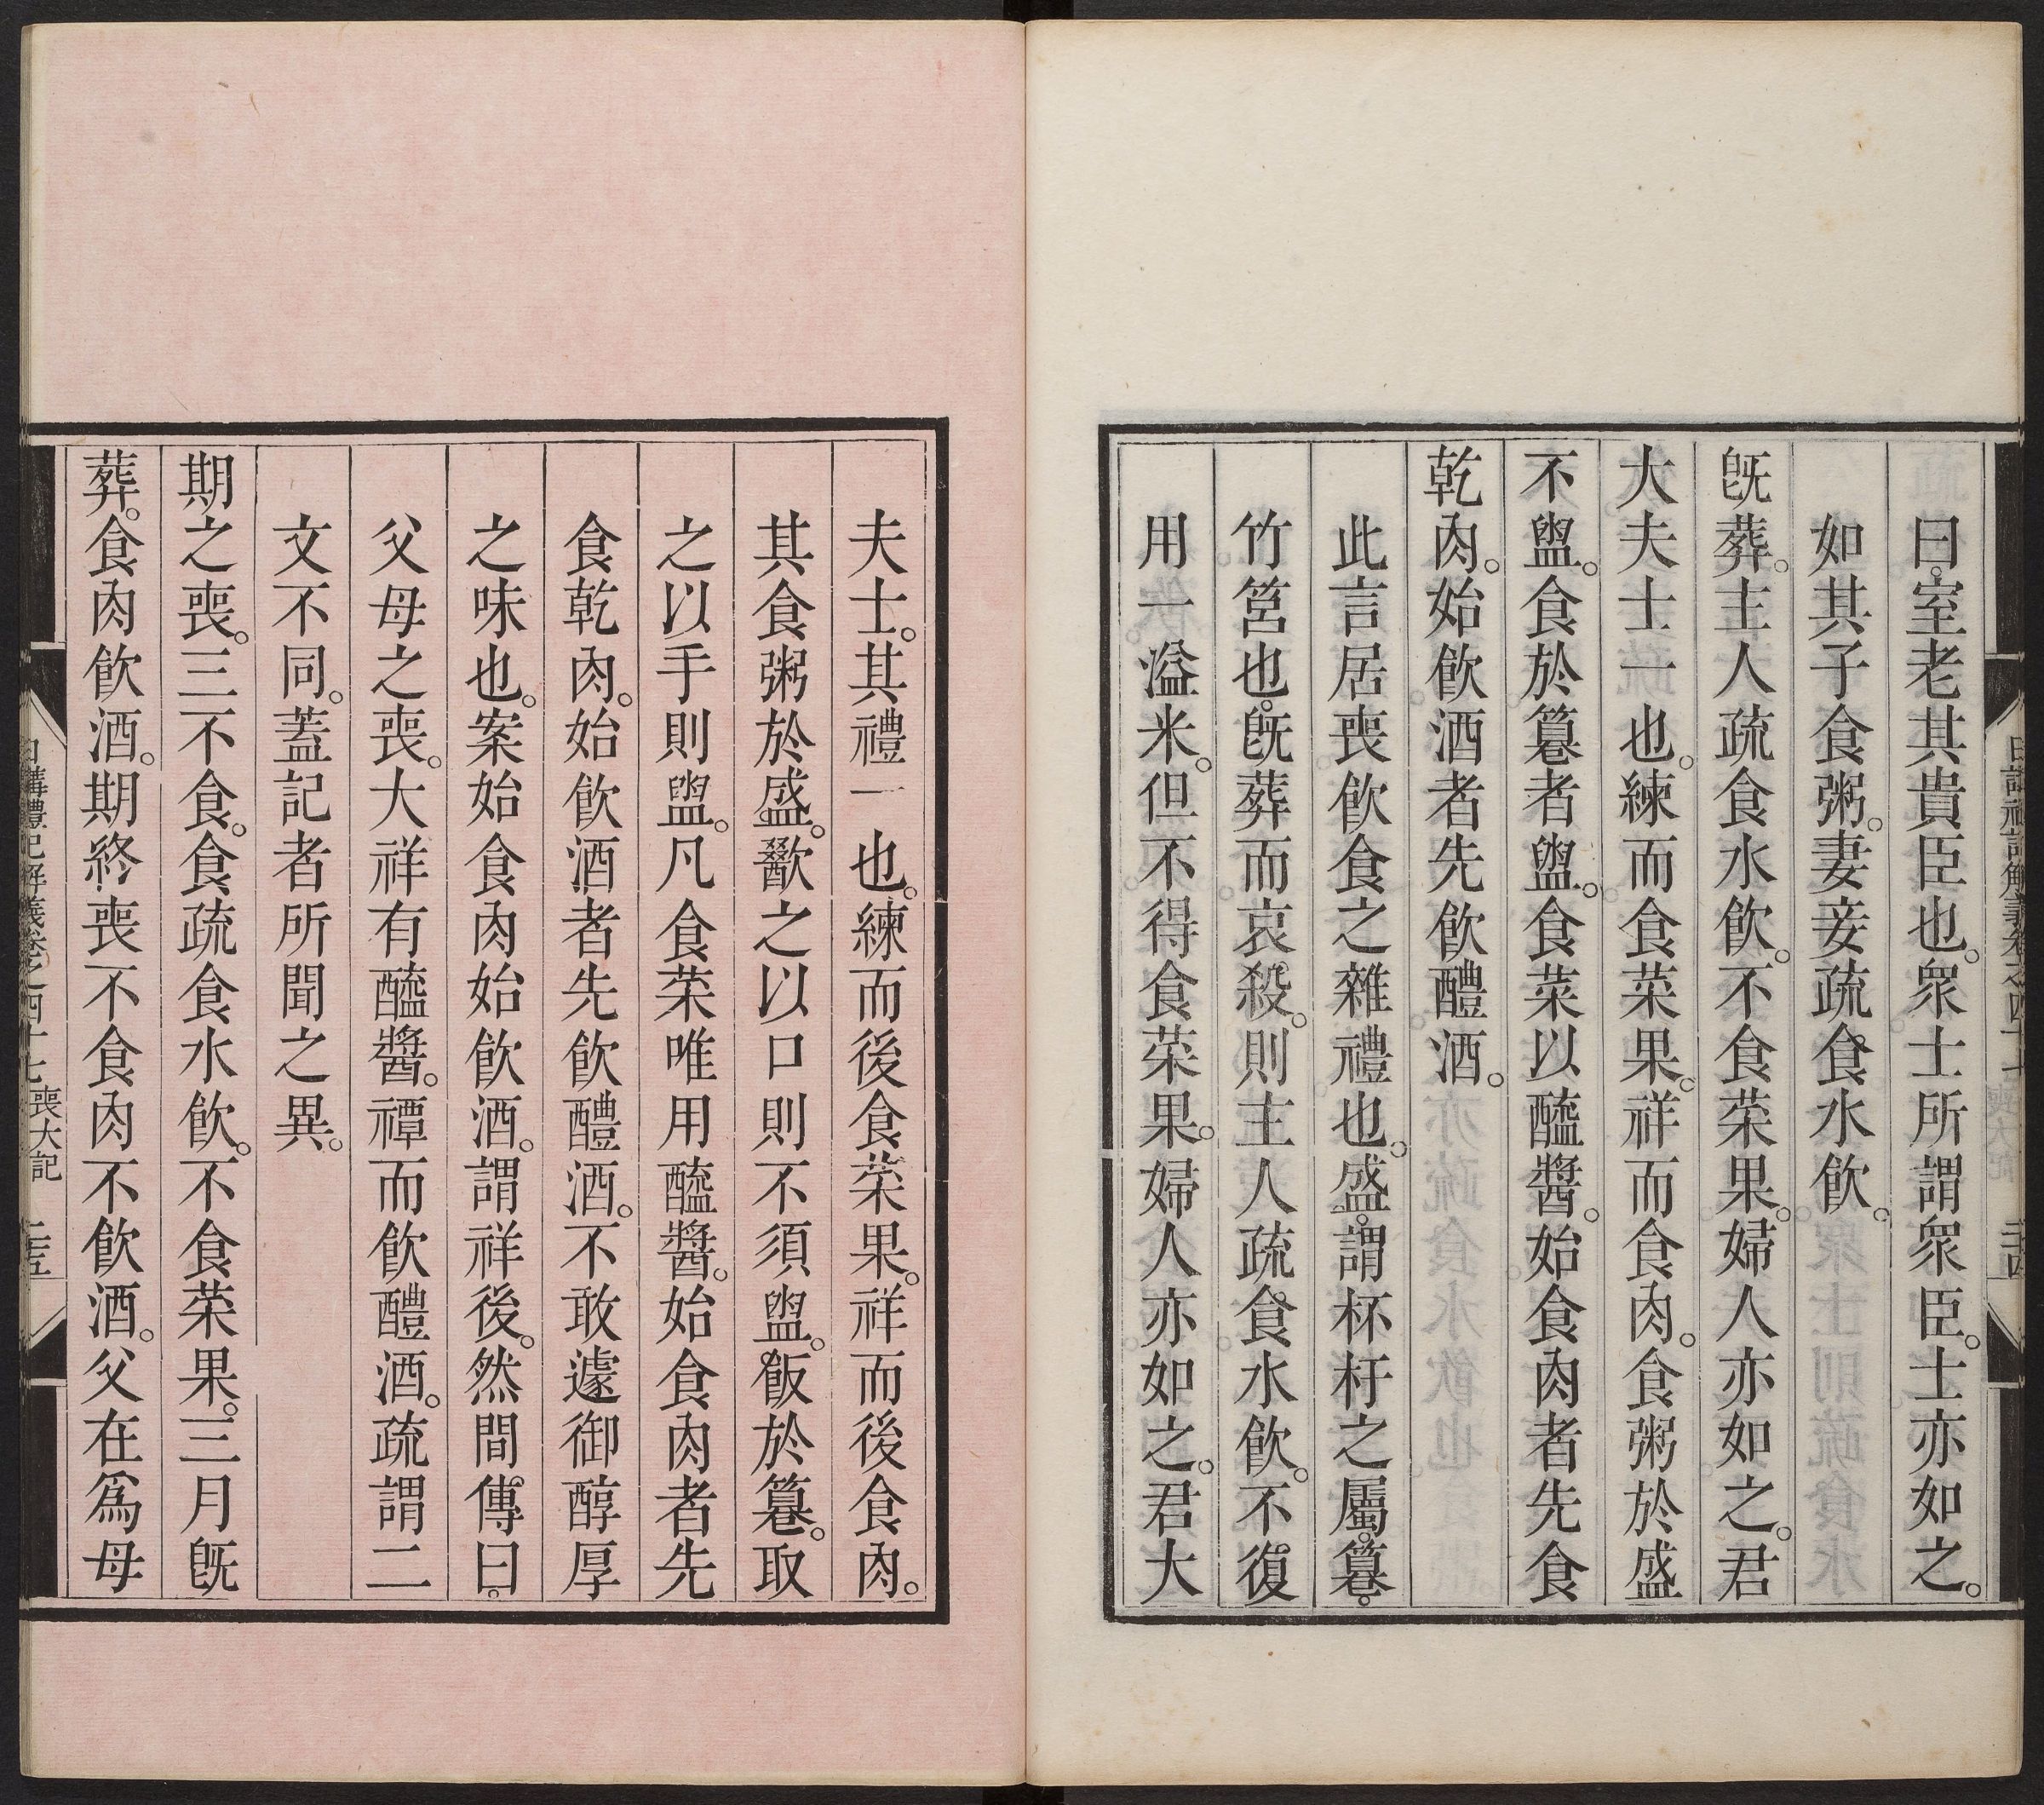 曰。室老其貴臣也。衆士所謂衆臣。士亦如之。
如其子食粥。妻妾疏食水飲。
旣葬。主人疏食水飲。不食菜果。婦人亦如之。君
大夫士一也。練而食菜果。祥而食肉。食粥於盛
不盥。食於篹者盥。食菜以醯醬。始食肉者先食
乾肉。始飲酒者先飲醴酒。
此言居喪飲食之雜禮也。盛。謂杯杅之屬。篹。
竹筥也。旣葬而哀殺。則主人疏食水飲。不復
用一溢米。但不得食菜果。婦人亦如之。君大
夫士。其禮一也。練而後食菜果。祥而後食肉。
其食粥於盛。歠之以口則不須盥。飯於篹。取
之以手則盥。凡食菜唯用醯醬。始食肉者先
食乾肉。始飲酒者先飲醴酒。不敢遽御醇厚
之味也。案始食肉始飲酒。謂祥後。然間傳曰。
父母之喪。大祥有醯醬。禫而飲醴酒。疏謂二
文不同。蓋記者所聞之異。
期之喪。三不食。食疏食水飲。不食菜果。三月旣
葬。食肉飲酒。期終喪不食肉不飲酒。父在爲母
日講禮記解義卷之四十七 喪大記 二十五